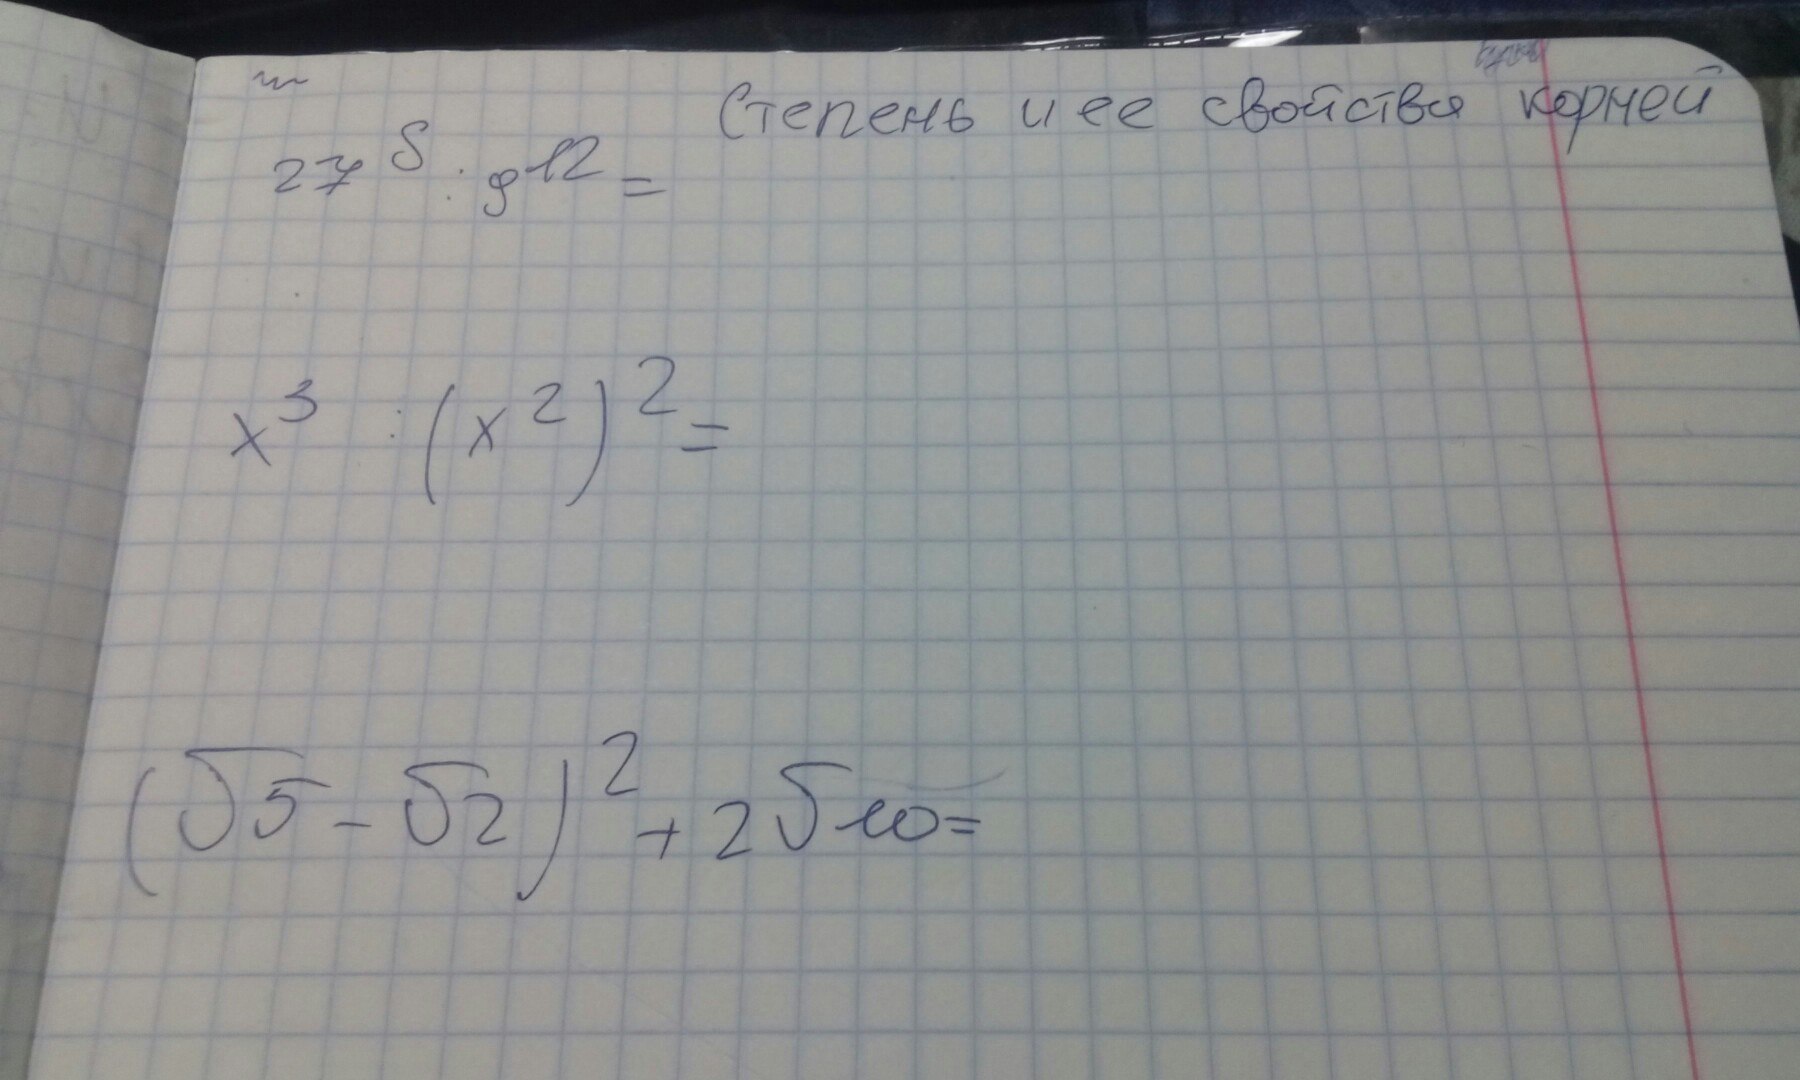 Степень и ее свойства корней
27⁵ : 9¹² =
x³ : (x²)² =
(√5 - √2)² + 2√10 =